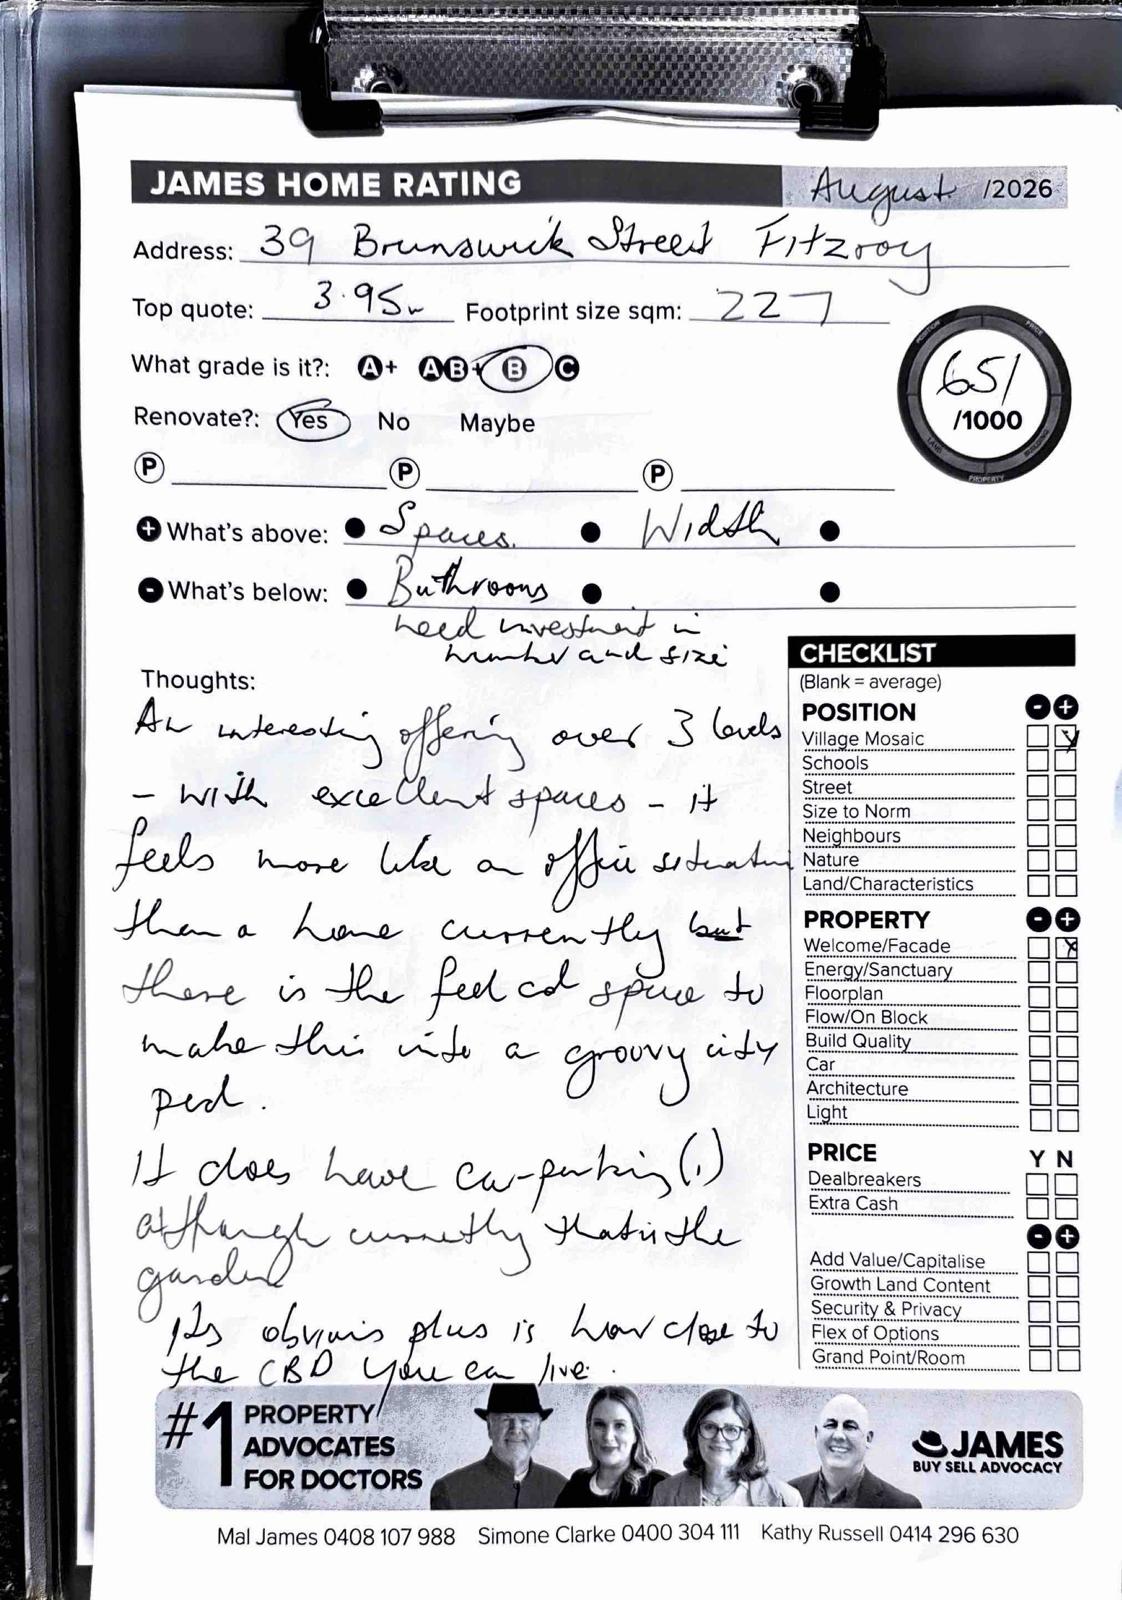 JAMES HOME RATING August /2026
Address: 39 Brunswick Street Fitzroy
Top quote: 3.95m Footprint size sqm: 227
What grade is it?: A+ A B+ B C
651 /1000
POSITION PRICE LAND BUILDING PROPERTY
Renovate?: Yes No Maybe
P P P
+ What's above: ● Spaces. ● Width ●
- What's below: ● Bathrooms ● ●
need investment in
number and size
Thoughts:
An interesting offering over 3 levels
- with excellent spaces - it
feels more like an office situation
than a home currently but
there is the feel and space to
make this into a groovy city
pad.
It does have car-parking (1)
although currently that is the
garden
Its obvious plus is how close to
the CBD you can live.
CHECKLIST
(Blank = average)
POSITION - +
Village Mosaic
Schools
Street
Size to Norm
Neighbours
Nature
Land/Characteristics
PROPERTY - +
Welcome/Facade
Energy/Sanctuary
Floorplan
Flow/On Block
Build Quality
Car
Architecture
Light
PRICE Y N
Dealbreakers
Extra Cash
- +
Add Value/Capitalise
Growth Land Content
Security & Privacy
Flex of Options
Grand Point/Room
#1 PROPERTY
ADVOCATES
FOR DOCTORS
JAMES
BUY SELL ADVOCACY
Mal James 0408 107 988 Simone Clarke 0400 304 111 Kathy Russell 0414 296 630